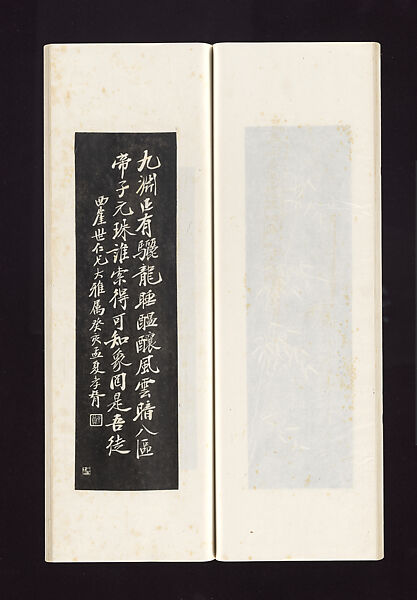 九淵正有驪龍睡醖釀風雲暗八區
帝子元珠誰索得可知象罔是吾徒
西厓世仁兄大雅屬癸亥孟夏孝胥